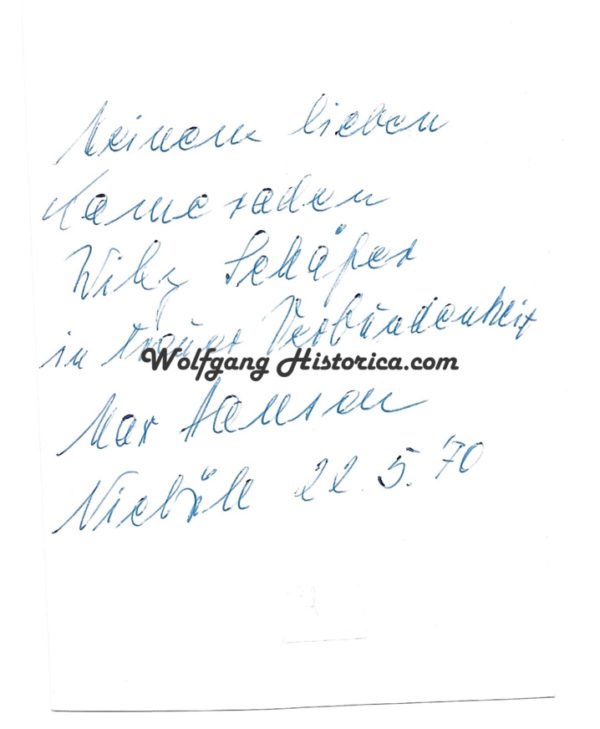 Meinem lieben
Kameraden
Willy Schäfer
in treuer Verbundenheit
Wolfgang Historica.com
Max Hansen
Niebüll 22.5.'70